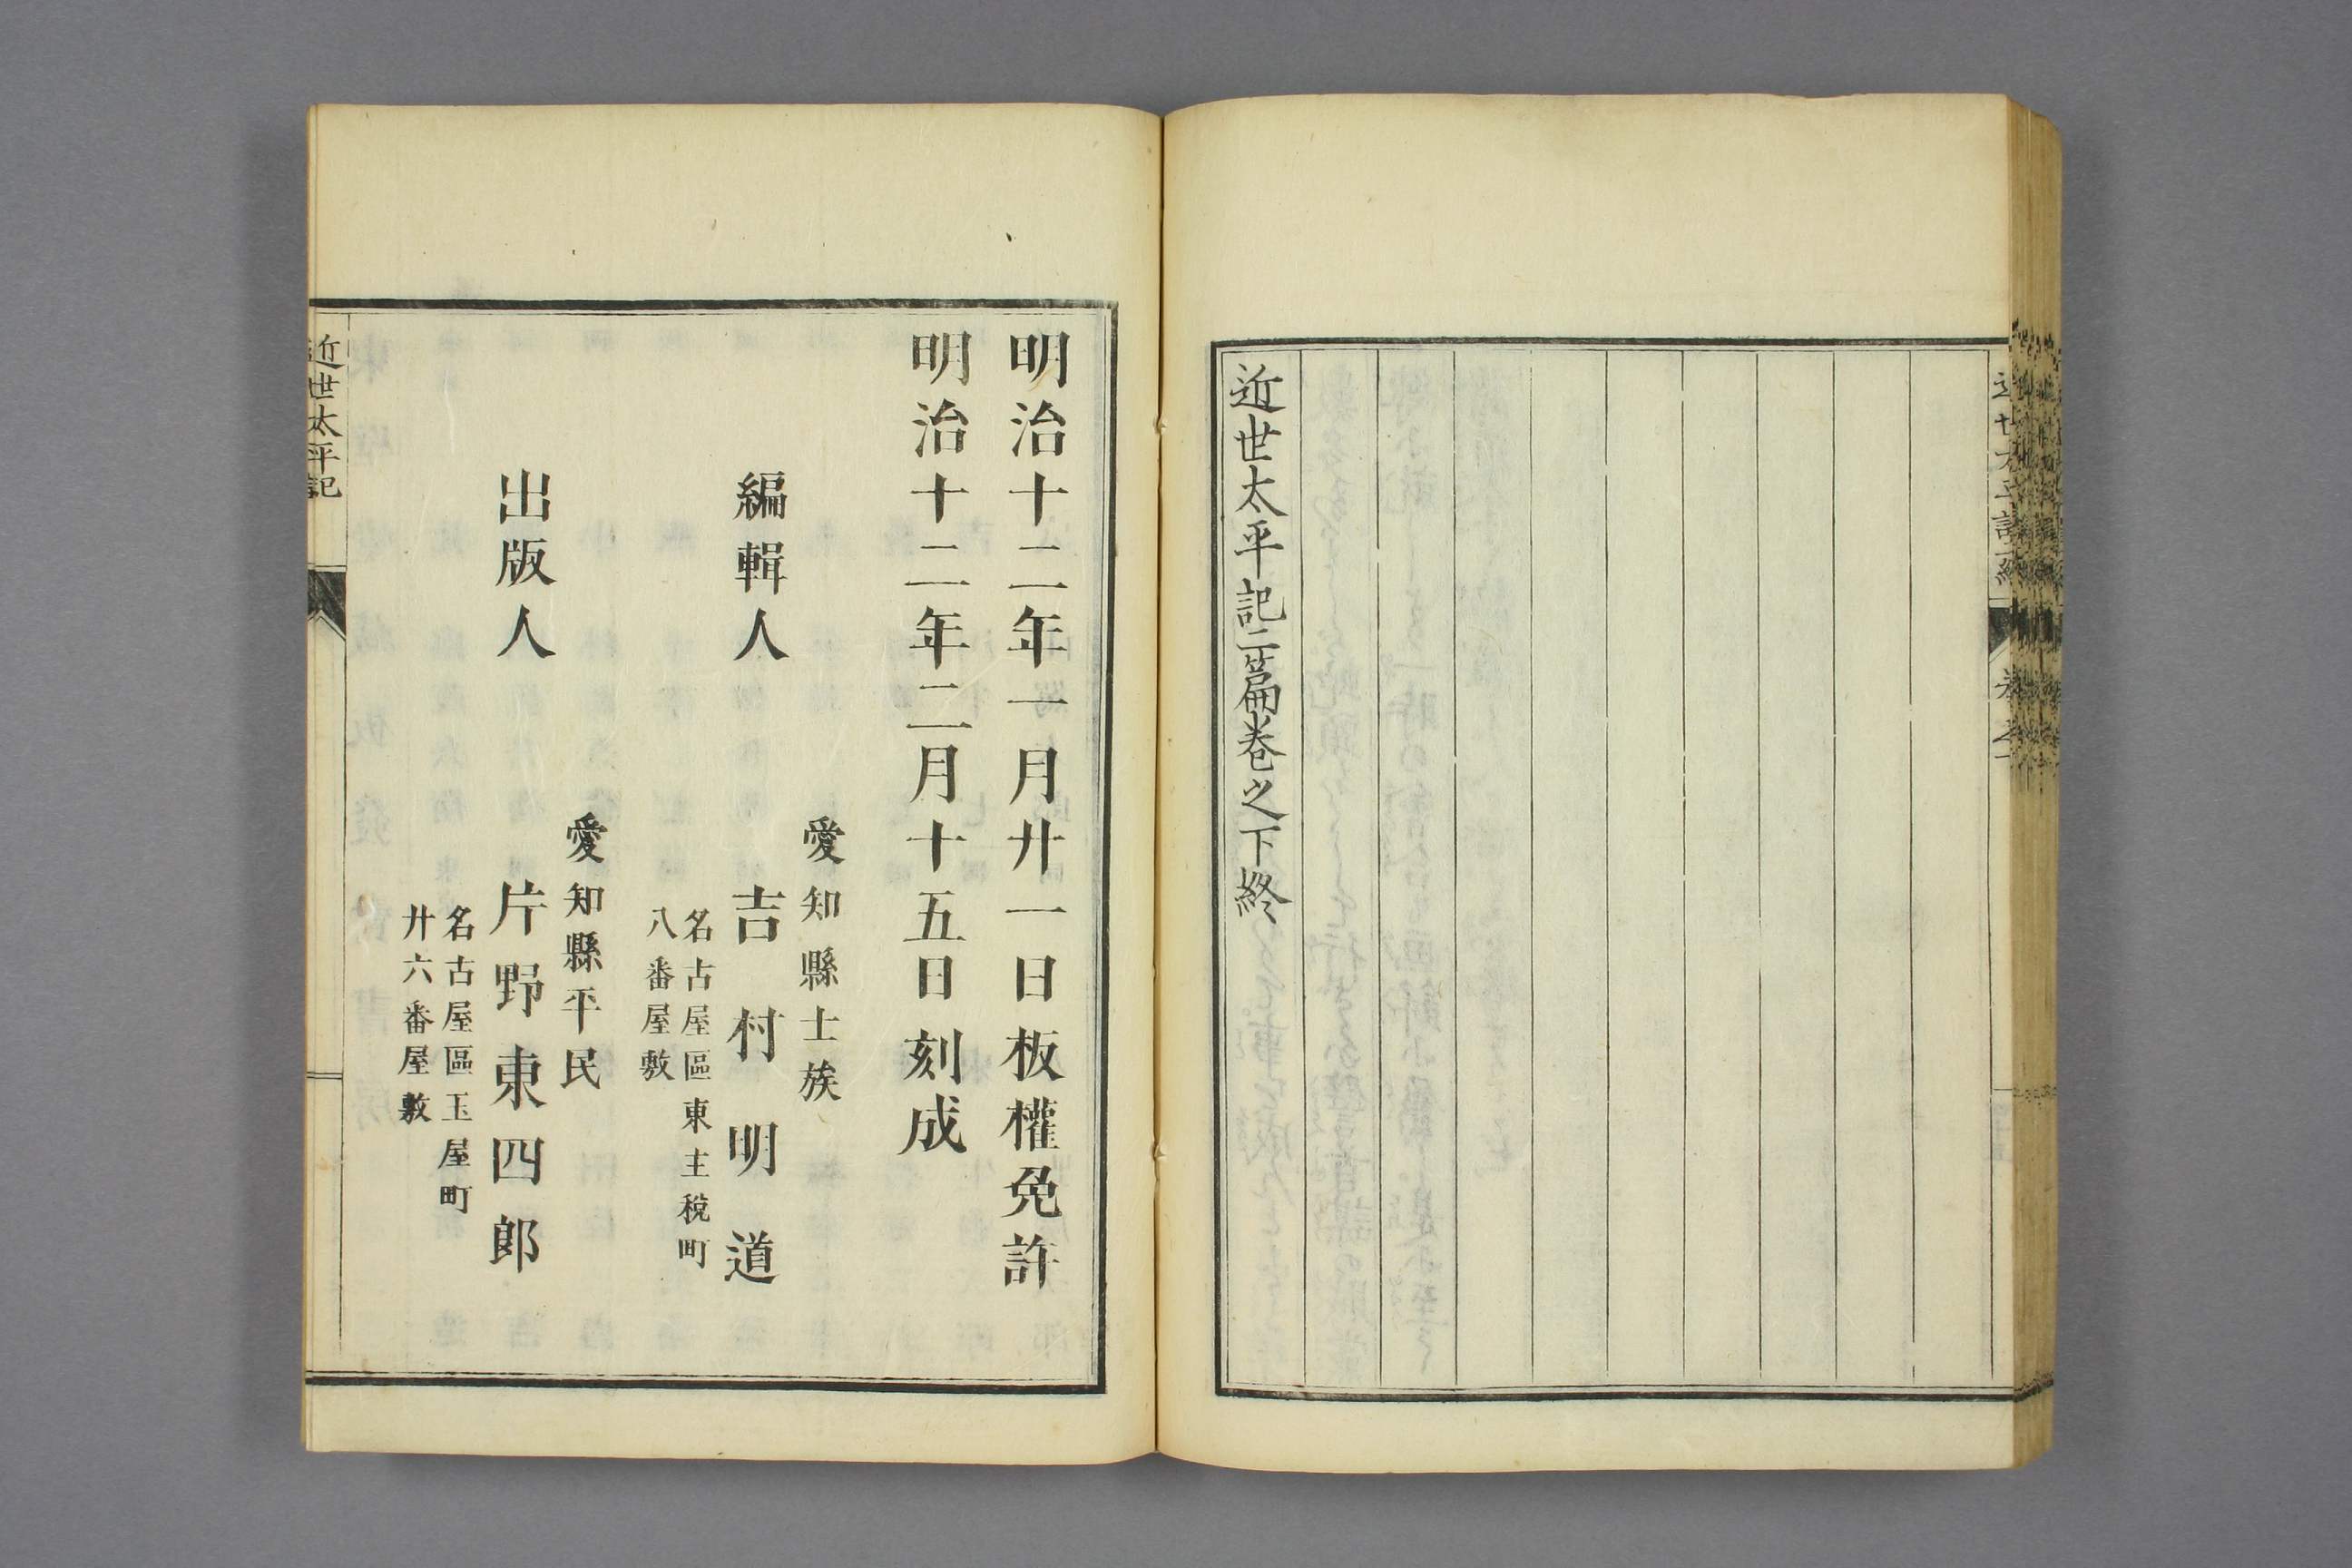 近世太平記二篇卷之下終
明治十二年一月廿一日板權免許
明治十二年二月十五日刻成
愛知縣士族
編輯人 吉村明道
名古屋區東主税町
八番屋敷
愛知縣平民
出版人 片野東四郎
名古屋區玉屋町
廿六番屋敷
近世太平記